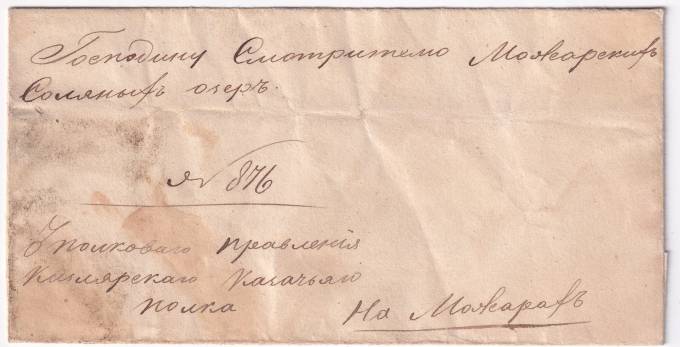 Господину Смотрителю Можарскихъ
Соляныхъ озеръ.
№ 876
полковаго правленія
Кизлярскаго Казачьяго
полка
На Можарахъ